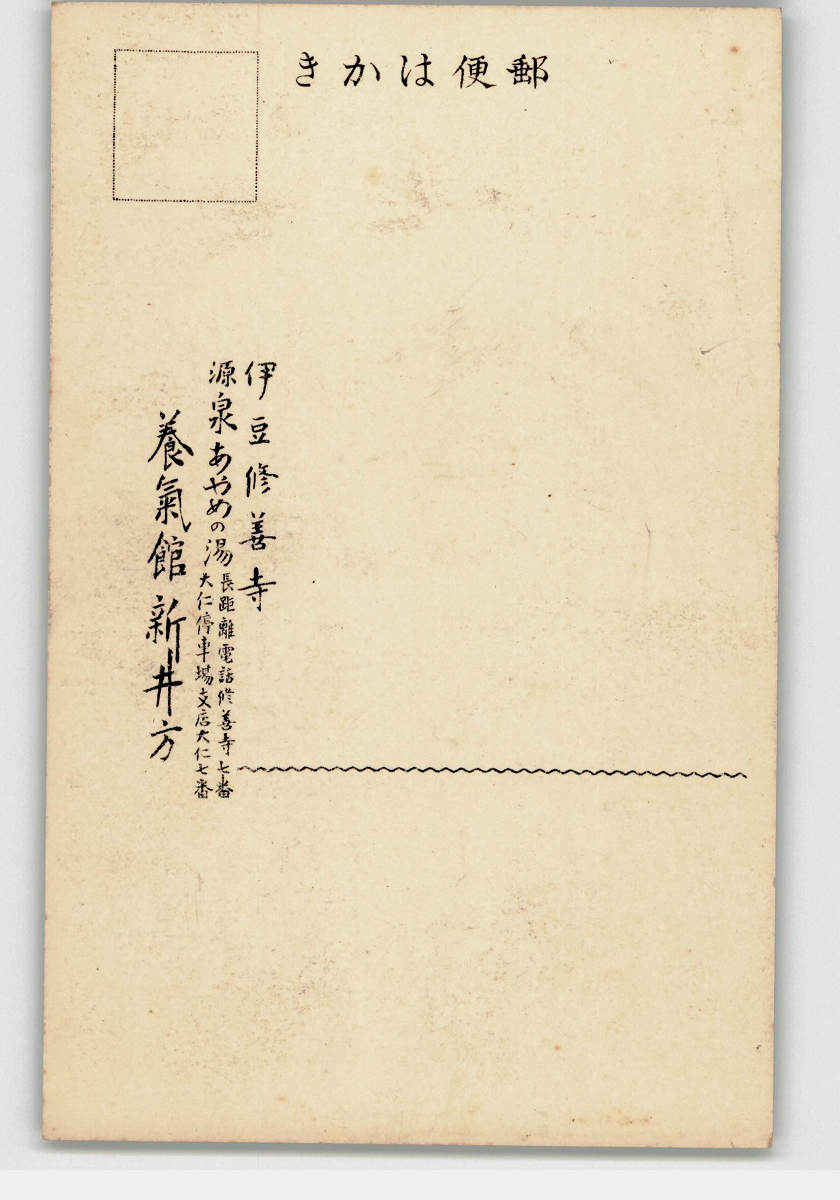 郵便はかき
伊豆修善寺
源泉あやめの湯
長距離電話修善寺七番
大仁停車場支店大仁七番
養氣館新井方